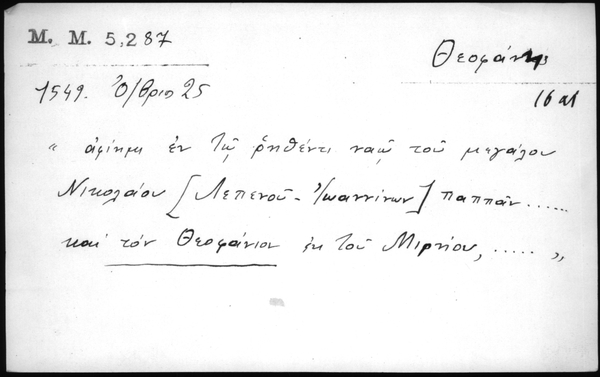 M. M. 5,287
Θεοφάνης
1549. Ὀ/βριος 25
16 αι
" ἀφίημι ἐν τῷ ῥηθέντι ναῷ τοῦ μεγάλου
Νικολάου [Λεπενοῦ - Ἰωαννίνων] παππᾶν ......
καὶ τὸν Θεοφάνιον ἐκ τοῦ Μιρνίου, ..... "